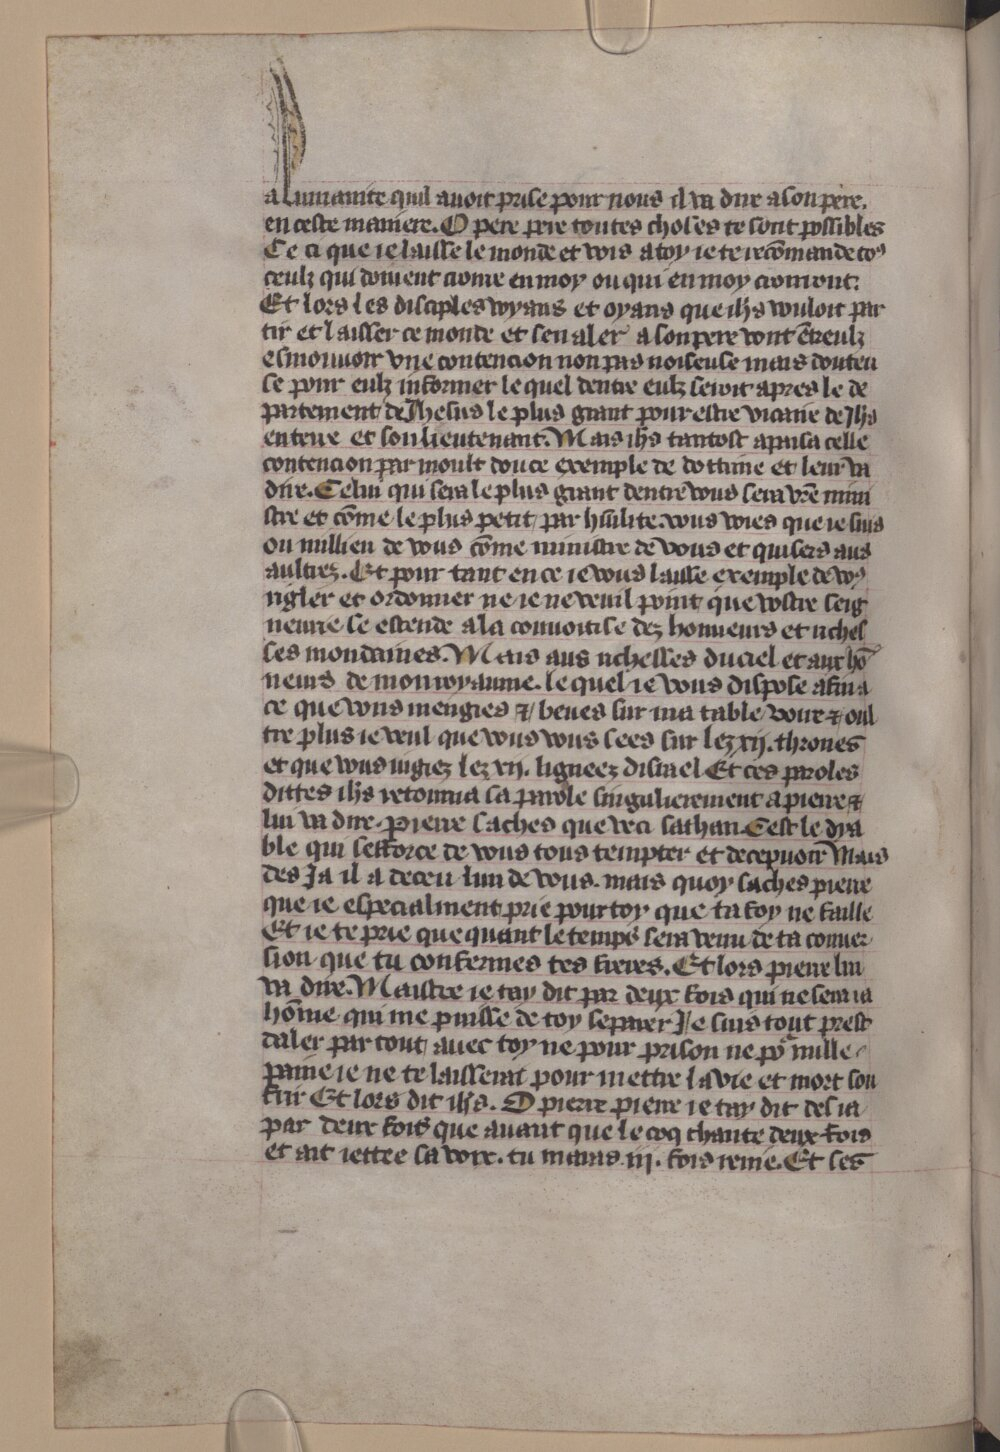 a Lumanite quil auoit prise pour nous il va dire a son pere.
en ceste maniere. O pere pere toutes choses te sont possibles
Ce ci que ie laisse le monde et vois a toy ie te recōmande toꝰ
ceulz qui doiuent croire en moy ou qui en moy croiront.
Et lors les disciples voyans et oyans que ihs vouloit par
tir et laisser ce monde et sen aler a son pere vont ētre eulz
esmouuoir vne contencion non pas noiseuse mais douteu
se pour eulz informer le quel dentre eulz seroit apres le de
partement de Jhesus le plus grant pour estre vicaire de Jhs
en terre et son lieutenant. Mais ihs tantost apaisa celle
contencion par moult douce exemple de dottrine et leur va
dire. Celui qui sera le plus grant dentre vous sera vr̄e mini
stre et cōme le plus petit par hūilite vous vöies que ie suis
ou millieu de vous cōme ministre de vous et qui sers aus
aultrez. Et pour tant en ce ie vous laisse exemple de voꝰ
rigler et ordonner ne ie ne veuil point que vostre seig
neurie se estende a la conuoitise dez honneurs et riches
ses mondaines. Mais aus richesses du ciel et aux hō
neurs de mon royaume. le quel ie vous dispose afin a
ce que vous mengies ⁊ beues sur ma table voire ⁊ oul
tre plus ie veul que vous vous sees sur lez xij. thrones
et que vous iugiez lez xij. ligneez disrael Et ces paroles
dittes ihs retourna sa parole singulierement a pierre ⁊
lui va dire. Pierre saches que veci sathan. Cest le dya
ble qui sefforce de vous tous tempter et decepuoir Mais
des Ja il a deceu lun de vous. mais quoy saches pierre
que ie especialment prie pour toy que ta foy ne faille
Et ie te prie que quant le temps sera venu de ta conuer
sion que tu confermes tes freres. Et lors pierre lui
va dire. Maistre ie tay dit par deux fois qui ne sera ia
hōme qui me puisse de toy separer Je suis tout prest
daler par tout auec toy ne pour prison ne po᷑ nulle
paine ie ne te laisserai pour mettre la vie et mort sou
frir Et lors dit ihs. O pierre pierre ie tay dit des ia
par deux fois que auant que le coq chante deux fois
et ait iettee sa voix. tu maras .iij. fois renie. Et ses